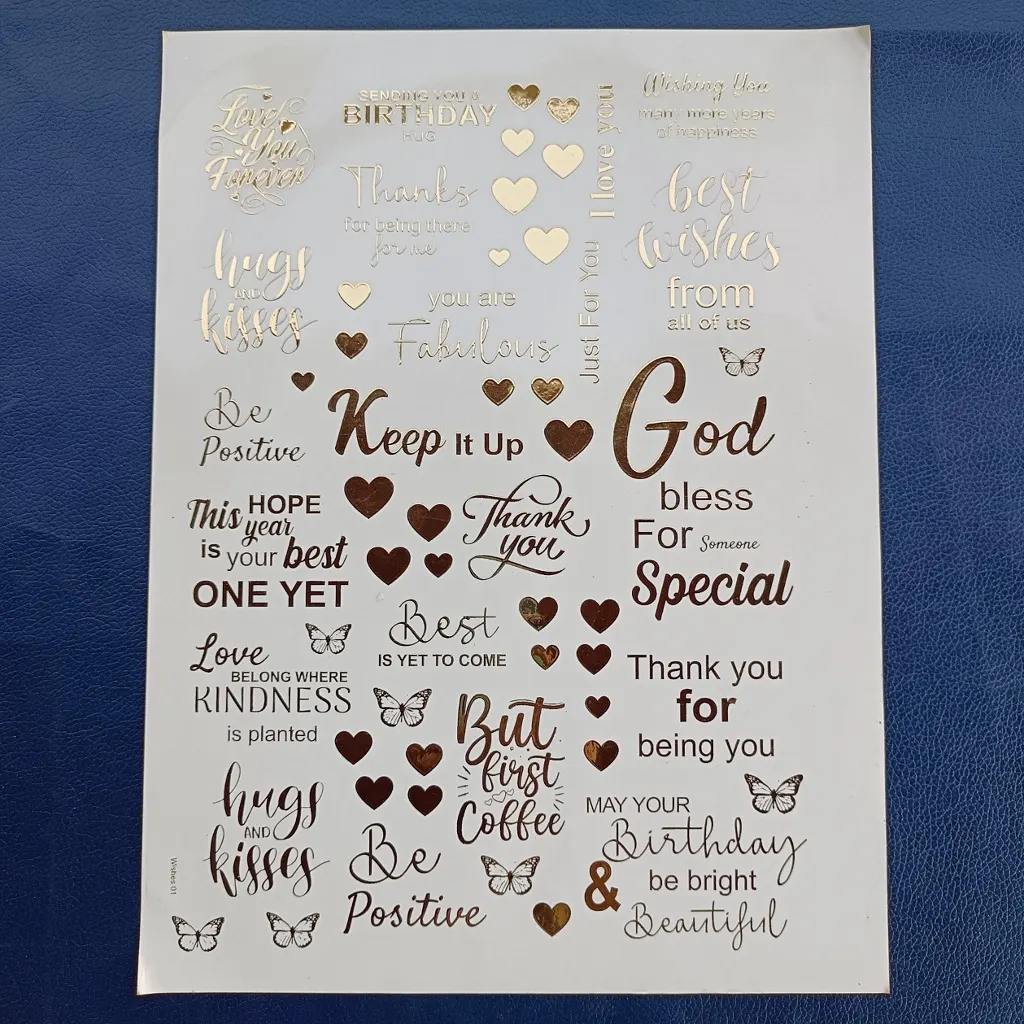 Love
You
Forever
SENDING YOU a
BIRTHDAY
HUG
I love you
Wishing You
many more years
of happiness
Thanks
for being there
for me
best
wishes
from
all of us
hugs
AND
kisses
you are
Fabulous
Just For You
Be
Positive
Keep It Up
God
bless
This HOPE
year
is your best
ONE YET
Thank
you
For Someone
Special
Best
IS YET TO COME
Love
BELONG WHERE
KINDNESS
is planted
Thank you
for
being you
But
first
Coffee
hugs
AND
kisses
Be
Positive
MAY YOUR
Birthday
be bright
&
Beautiful
Wishes 01